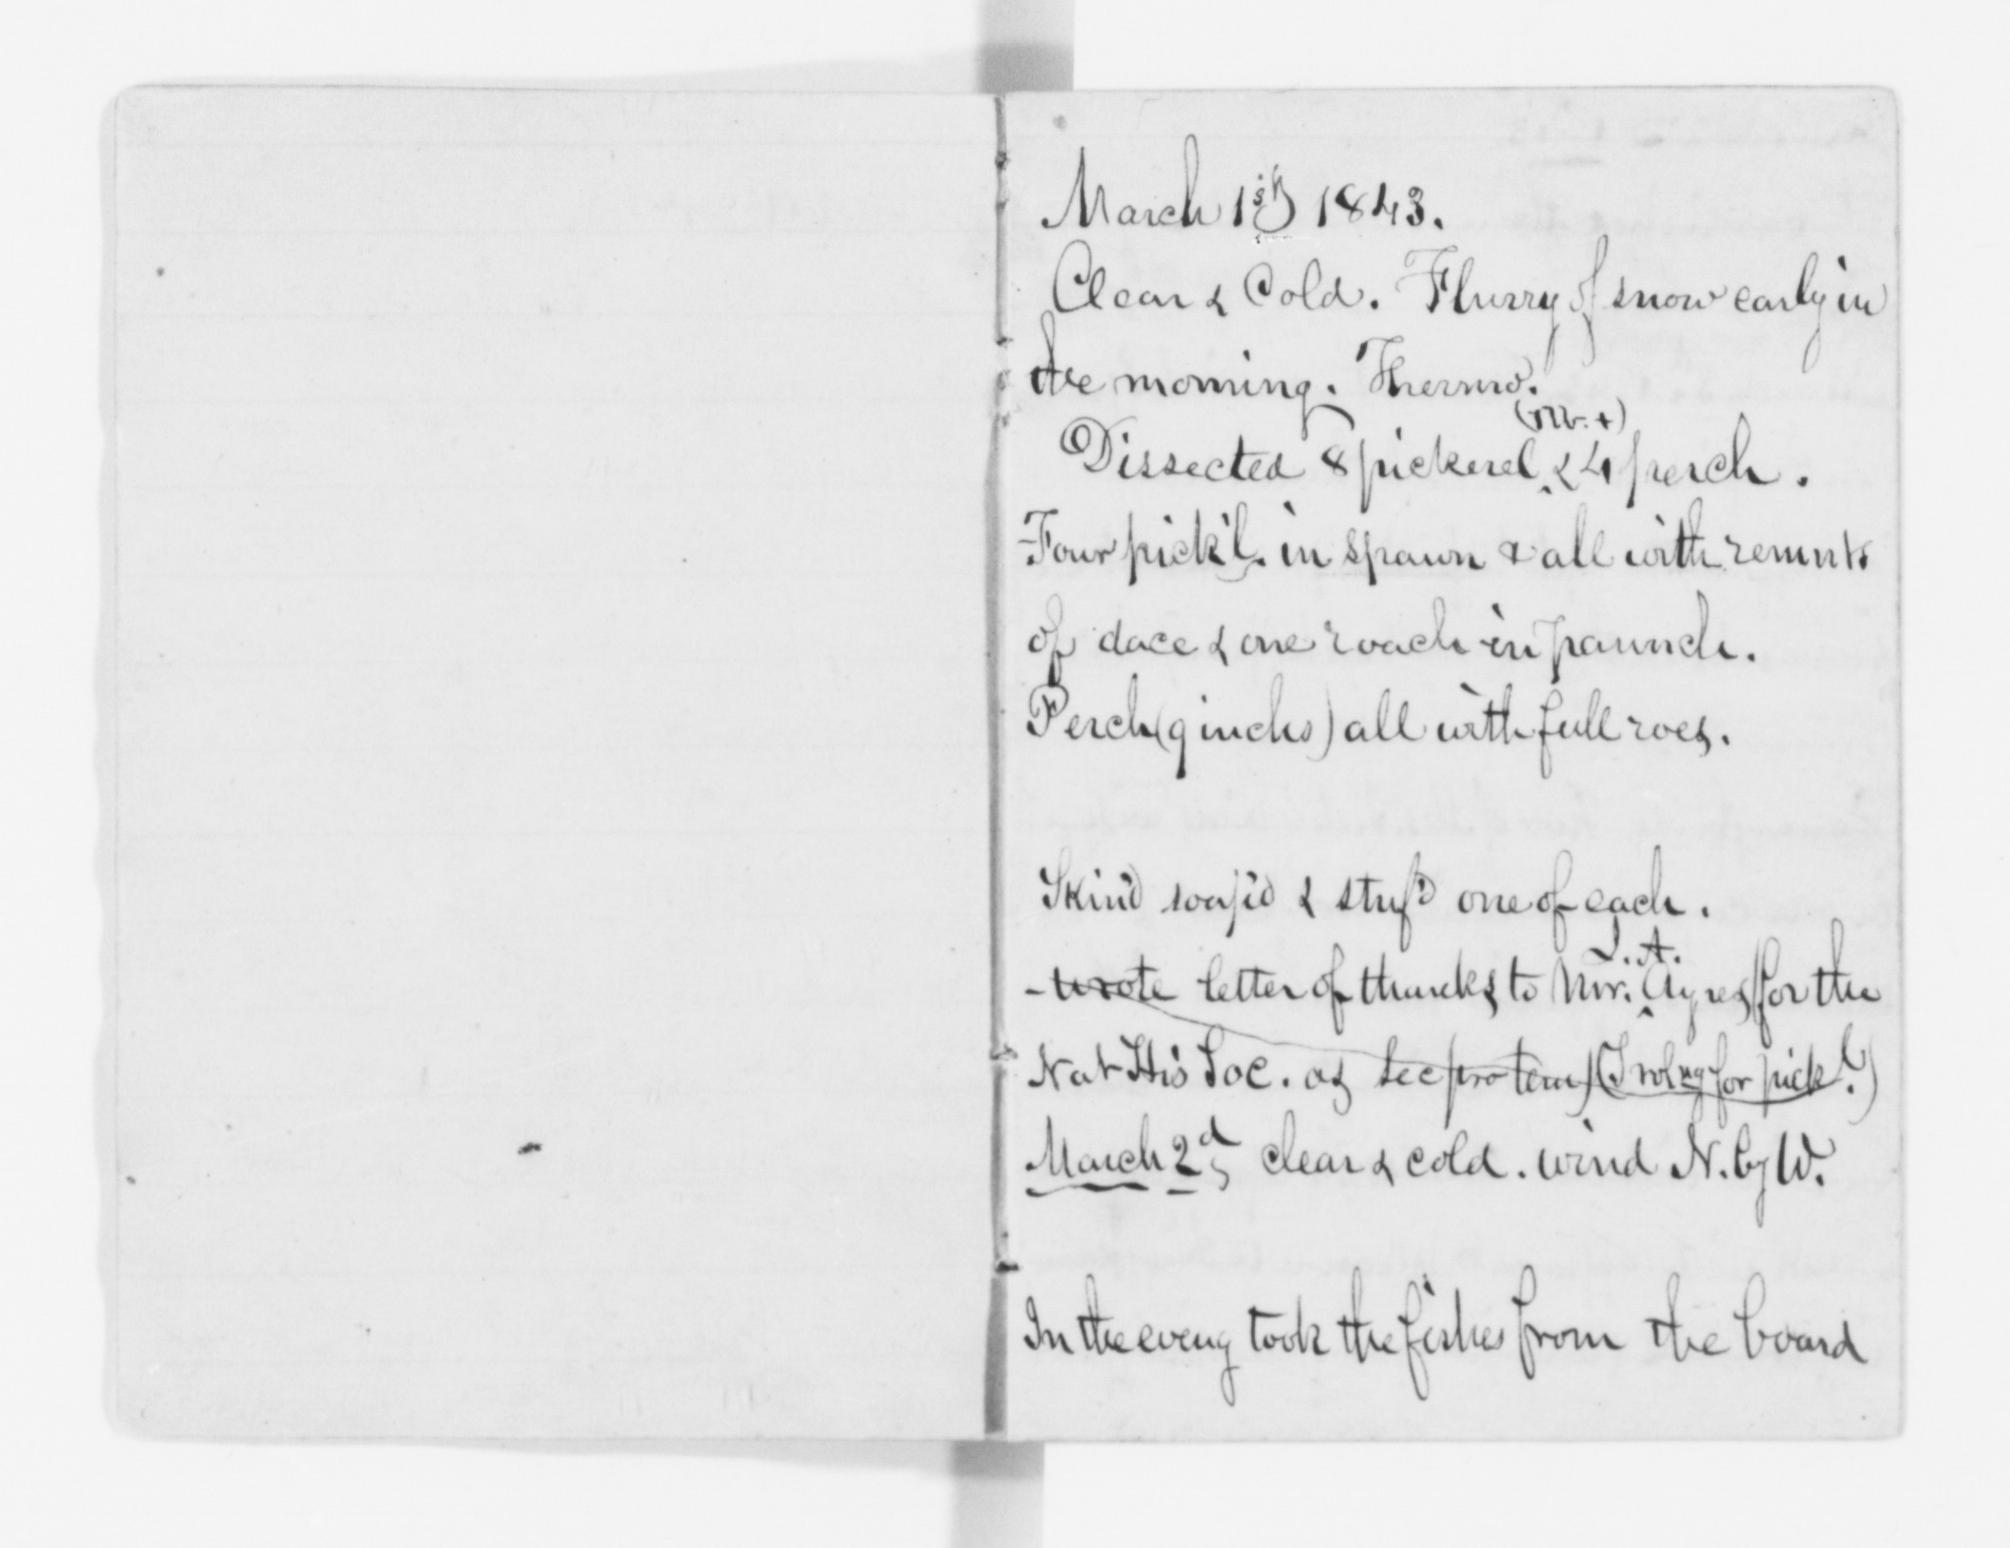 March 1st 1843.
Clear & Cold. Flurry of snow early in
the morning. Thermo.
Dissected 8 pickerel & 4 perch.
Four pick'l. in spawn & all with remnts
of dace & one roach in paunch.
Perch (9 inchs) all with full roes.
Skin'd soap'd & stuf'd one of each.
- wrote letter of thanks to Mr. J. A. Ayres for the
Nat His Soc. as Sec pro tem (Troling for pickl.)
March 2d, clear & cold. wind N. by W.
In the eveng took the fishes from the board